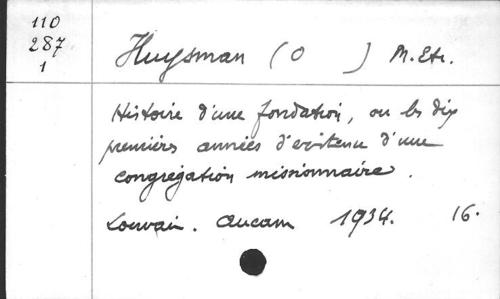 110
287
1
Huysman (O ) M. Etr.
Histoire d'une fondation, ou les dix
premières années d'existence d'une
congrégation missionnaire.
Louvain. Aucam 1934. 16.